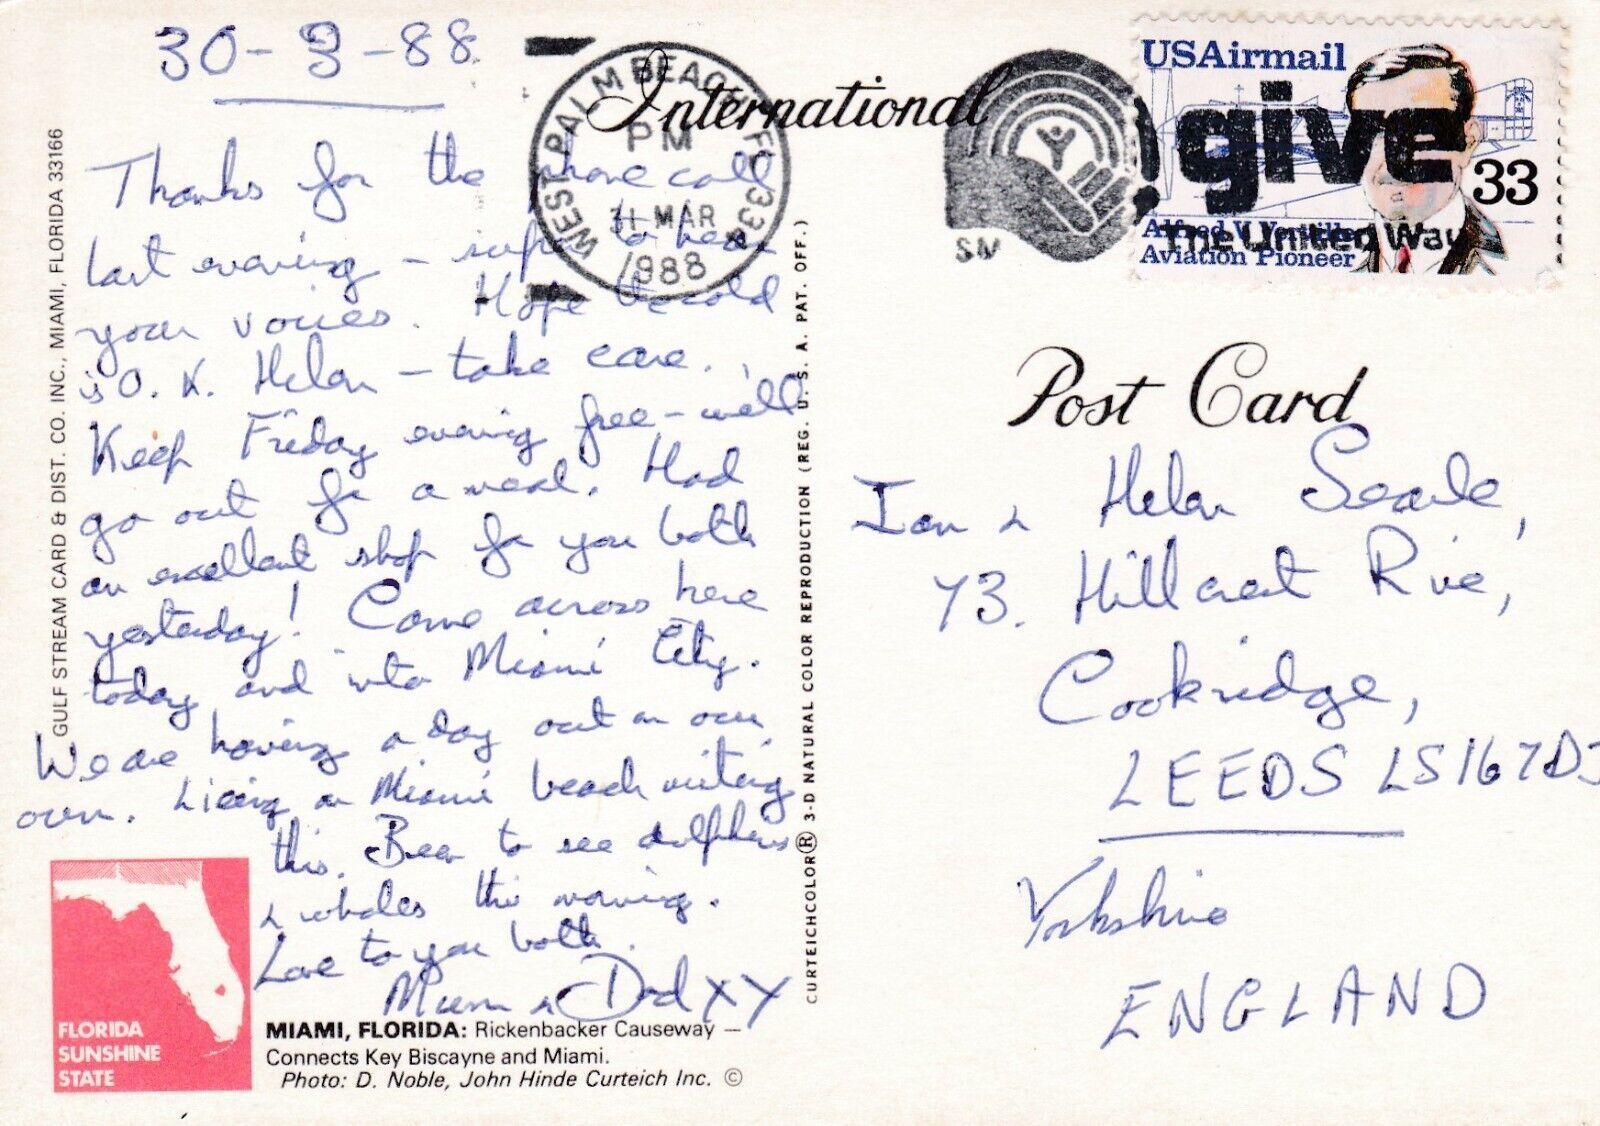 30-3-88
Thanks for the phone call
last evening - super to hear
your voices. Hope the cold
is O.K. Helen - take care.
Keep Friday evening free - we'll
go out for a meal. Had
an excellent shop for you both
yesterday! Come across here
today and into Miami City.
We are having a day out on our
own. Sitting on Miami beach writing
this. Been to see dolphins
& whales this morning.
Love to you both.
Mum & Dad XX
International
WEST PALM BEACH, FL 334
PM
31 MAR
1988
give
The United Way
SM
USAirmail
33
Alfred V. Verville
Aviation Pioneer
Post Card
Ian & Helen Searle,
73. Hillcrest Rise,
Cookridge,
LEEDS LS16 7DJ
Yorkshire
ENGLAND
GULF STREAM CARD & DIST. CO. INC., MIAMI, FLORIDA 33166
CURTEICHCOLOR® 3-D NATURAL COLOR REPRODUCTION (REG. U. S. A. PAT. OFF.)
FLORIDA
SUNSHINE
STATE
MIAMI, FLORIDA: Rickenbacker Causeway —
Connects Key Biscayne and Miami.
Photo: D. Noble, John Hinde Curteich Inc. ©